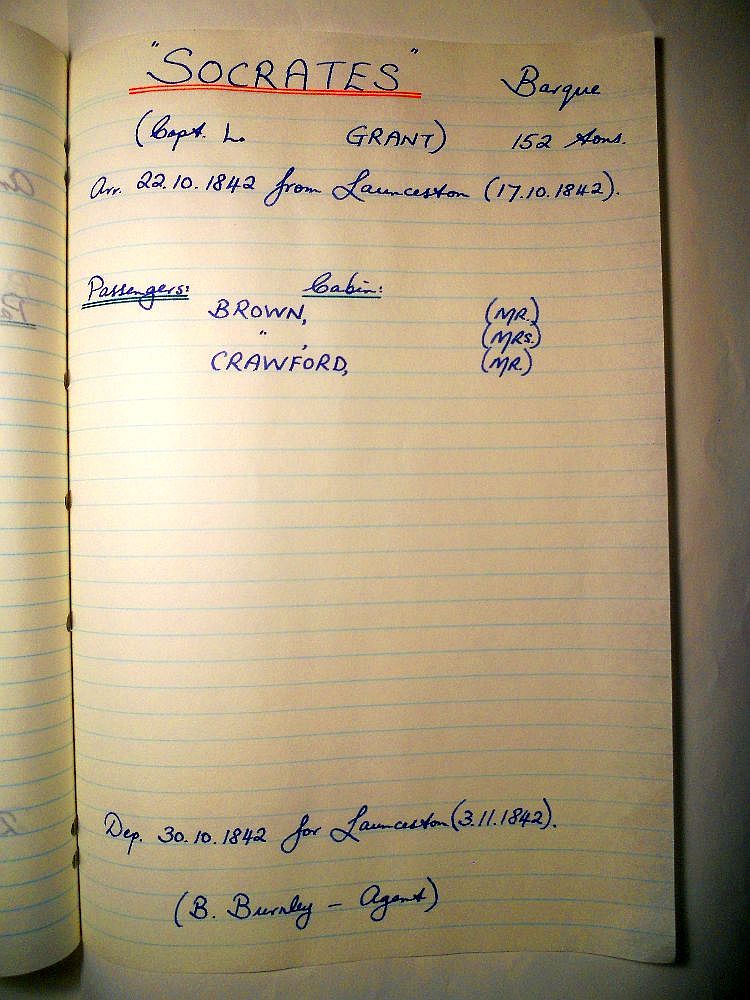 "SOCRATES" Barque
(Capt. L. GRANT) 152 tons.
Arr. 22.10.1842 from Launceston (17.10.1842).
Passengers: Cabin:
BROWN, (MR.)
" , (MRS.)
CRAWFORD, (MR.)
Dep. 30.10.1842 for Launceston (3.11.1842).
(B. Burnley – Agent)